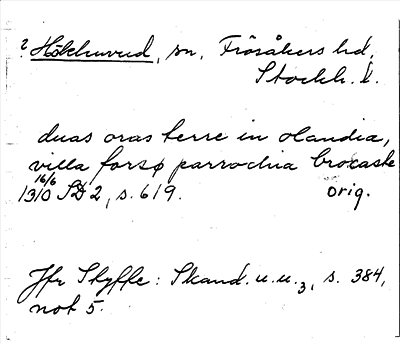 ? Hökhuvud, sn, Frösåkers hd,
Stockh. l.
duas oras terre in olandia,
villa forsø parrochia hrocaste
16/6
1310 SD 2, s. 619. orig.
Jfr Styffe: Skand. u. u. 3, s. 384,
not 5.